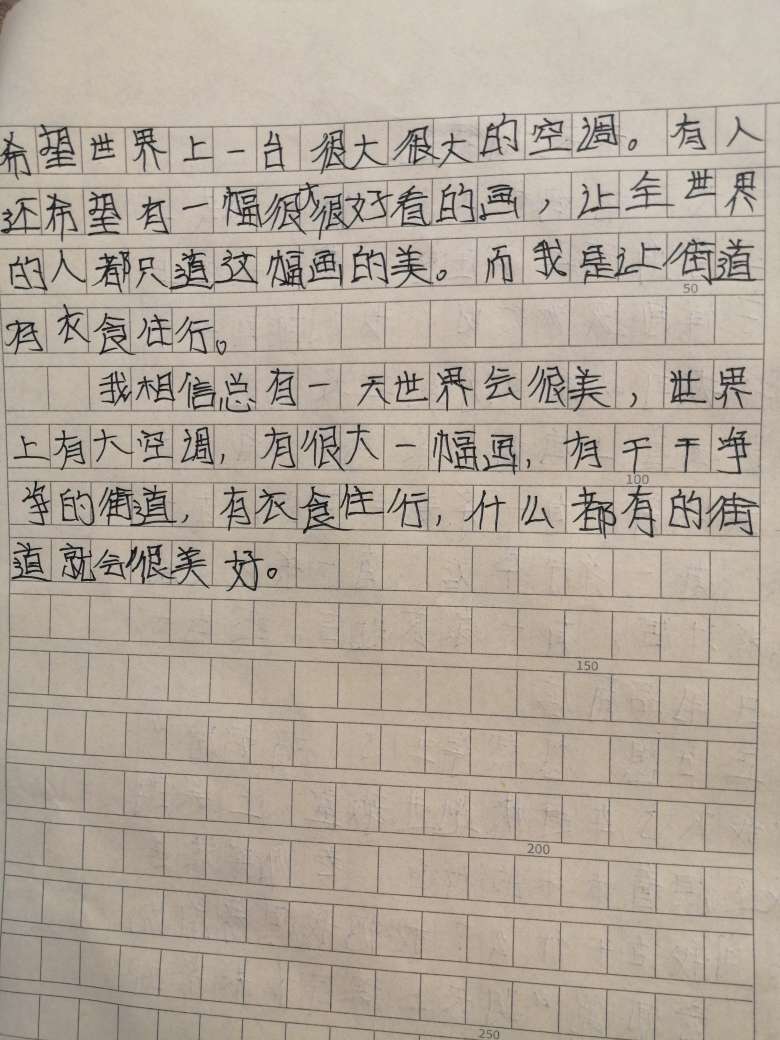 希望世界上一台很大很大的空调。有人
还希望有一幅很大很好看的画，让全世界
的人都只道这幅画的美。而我是让街道
有衣食住行。
50
我相信总有一天世界会很美，世界
上有大空调，有很大一幅画，有干干净
100
净的街道，有衣食住行，什么都有的街
道就会很美好。
150
200
250